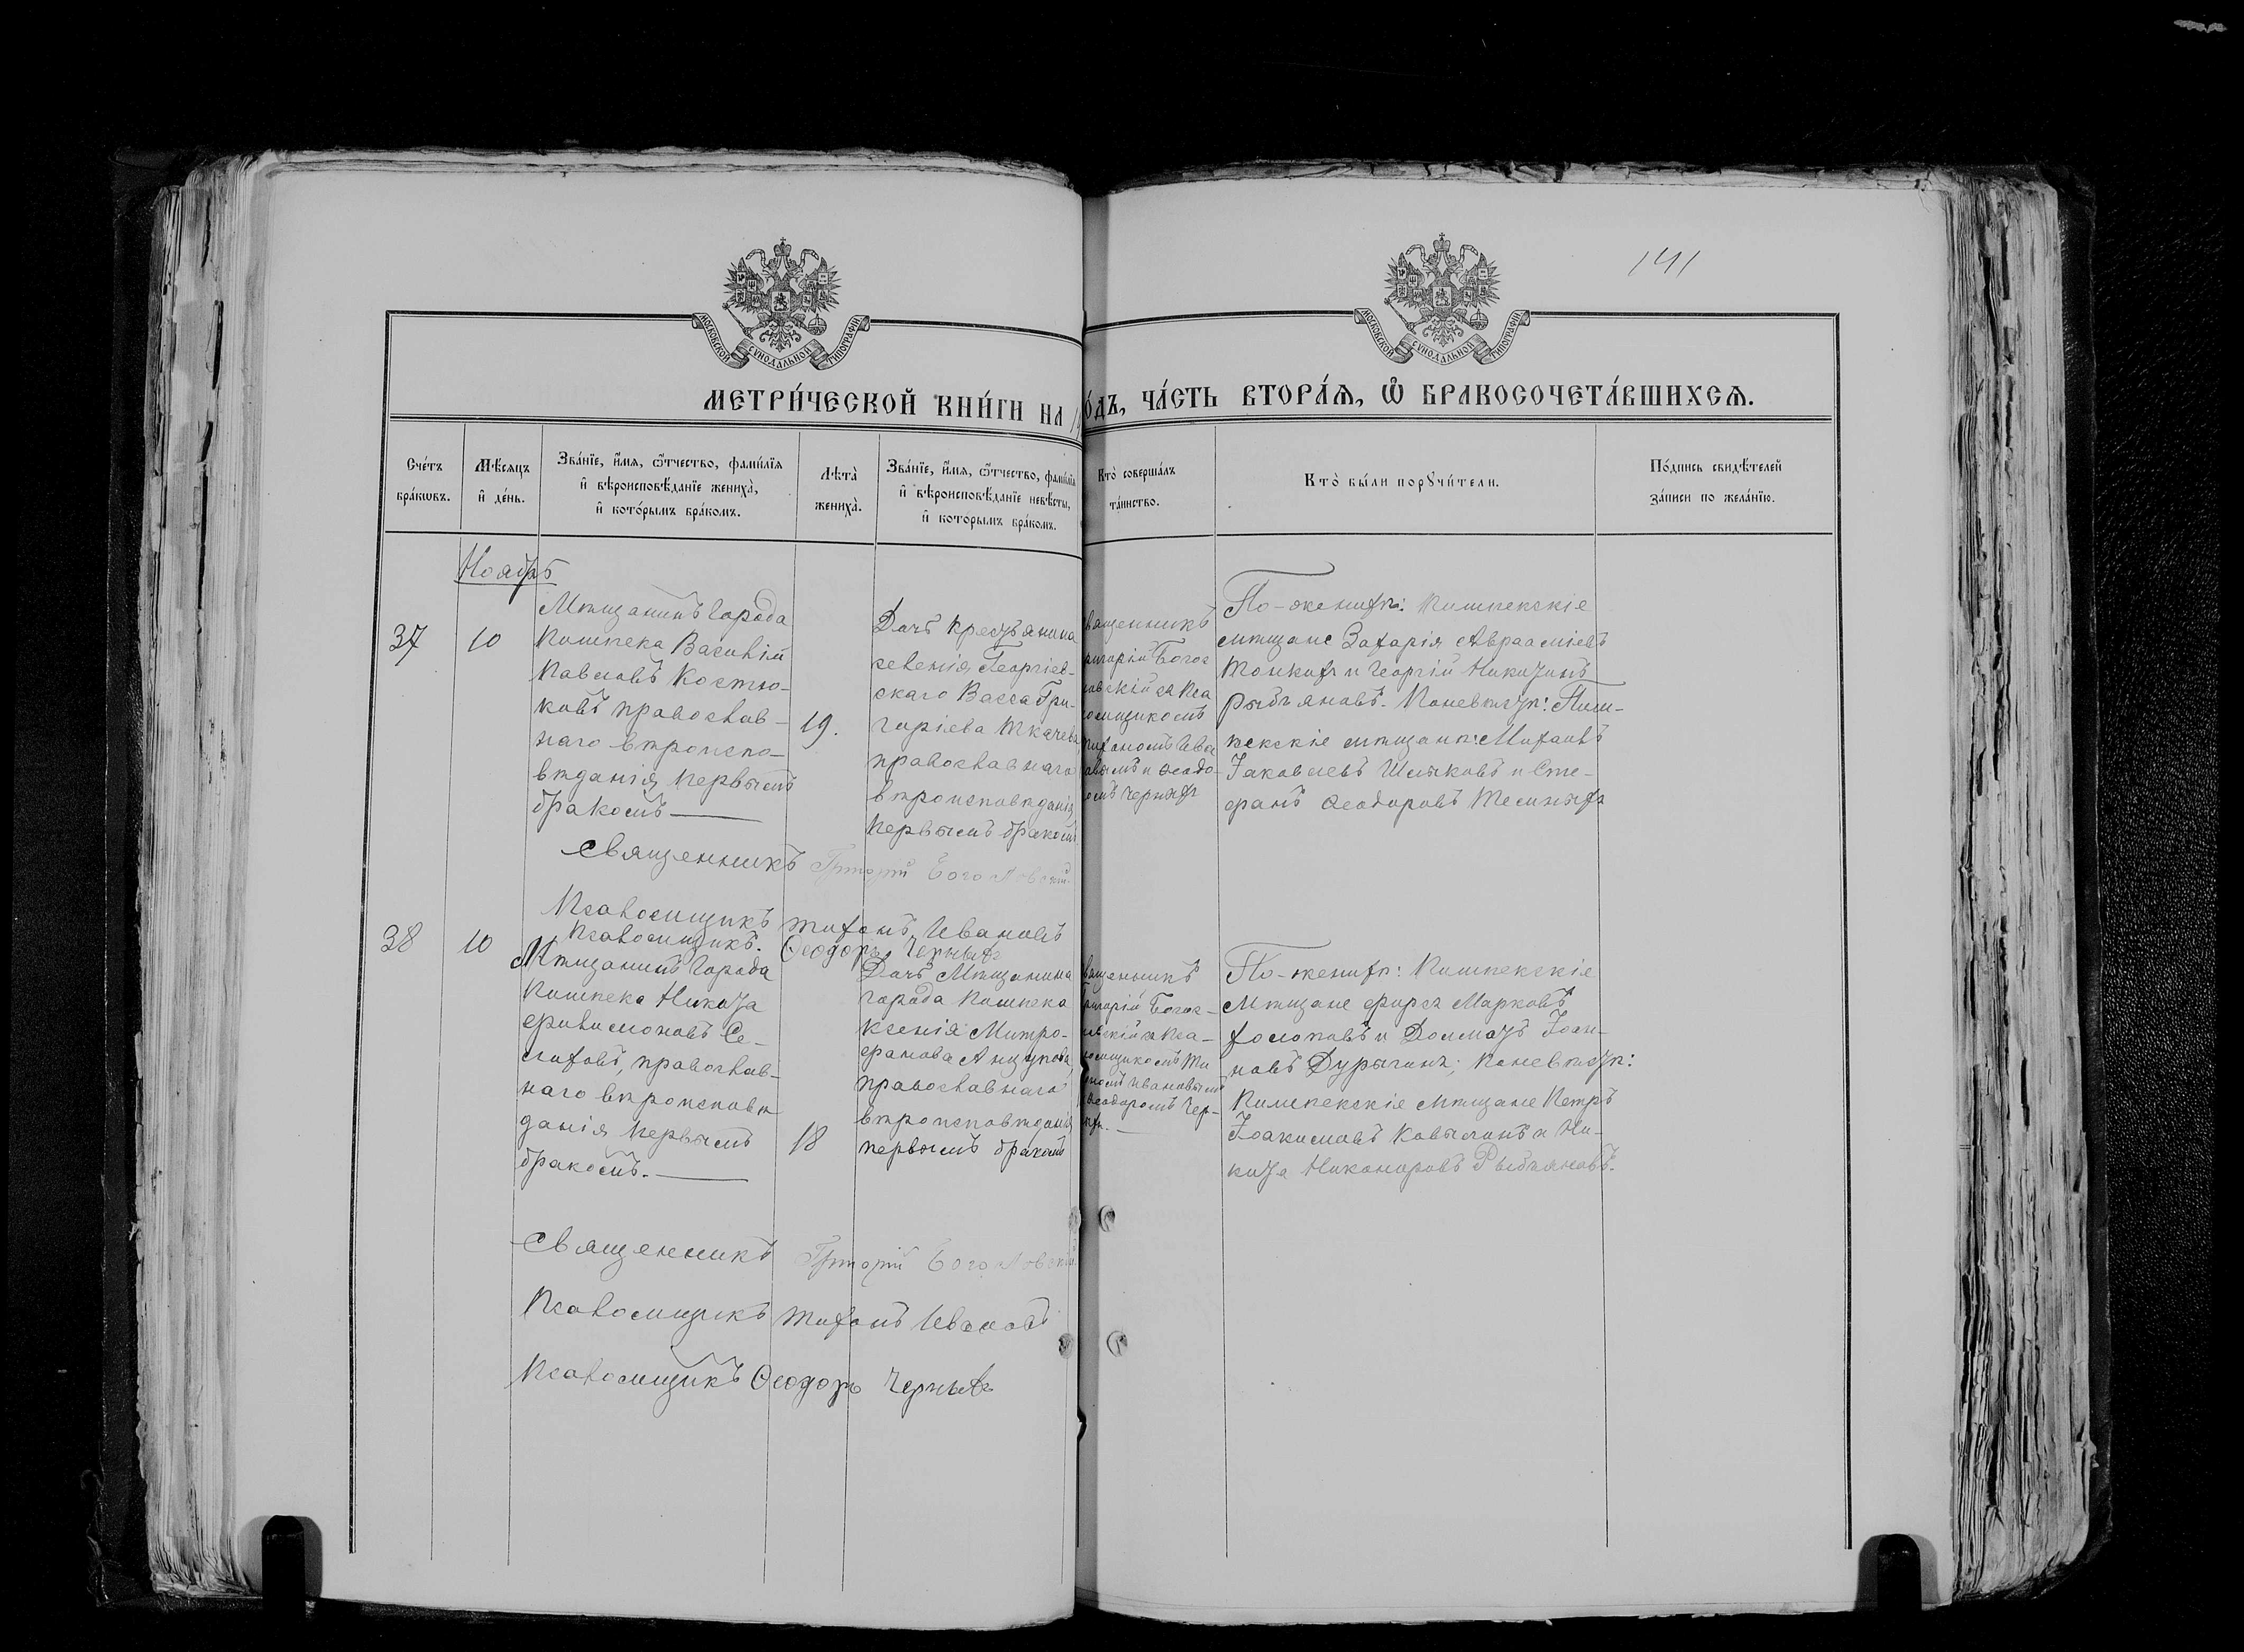 141
МОСКОВСКОЙ СУНОДАЛЬНОЙ ТИПОГРАФІИ
МОСКОВСКОЙ СУНОДАЛЬНОЙ ТИПОГРАФІИ
МЕТРИ́ЧЕСКОЙ КНИ́ГИ НА 1
О́ДЪ, ЧА́СТЬ ВТОРА́Ѧ, Ѽ БРАКОСОЧЕТА́ВШИХСѦ.
Сче́тъ
бра́кѡвъ.
Мѣ́сяцъ
и҆ де́нь.
Зва́нїе, и҆́мя, ѻ҆́тчество, фами́лїя
и҆ вѣроисповѣ́данїе жениха̀,
и҆ кото́рымъ бра́комъ.
Лѣ́та
жениха̀.
Зва́нїе, и҆́мя, ѻ҆́тчество, фами́лїя
и҆ вѣроисповѣ́данїе невѣ́сты,
и҆ кото́рымъ бра́комъ.
Кто̀ соверша́лъ
та́инство.
Кто̀ бы́ли порꙋчи́тели.
По́дпись свидѣ́телей
за́писи по жела́нїю.
Ноябрь
37
10
Мѣщанинъ города
Пишпека Василій
Павловъ Костю-
ковъ православ-
наго вѣроиспо-
вѣданія первымъ
бракомъ
19.
Дочь крестьянина
селенія Георгіев-
скаго Васса Гри-
горіева Ткачева
православнаго
вѣроисповѣданія
первымъ бракомъ
вященникъ
ригорій Богос
ловскій съ Пса
ломщикомъ
Тихономъ Ива
овымъ и Ѳеодо-
омъ Черныхъ
По-женихѣ: Пишпекскіе
мѣщане Захарія Авраамiевъ
Тонкихъ и Георгій Никитинъ
Рыбъяновъ. По невѣстѣ: Пиш-
пекскіе мѣщане: Михаилъ
Іаковлевъ Шлыковъ и Сте-
фанъ Ѳеодоровъ
Священникъ Григорій Богословскій
Псаломщикъ Тихонъ Ивановъ
Псаломщикъ. Ѳеодоръ Черныхъ
38
10
Мѣщанинъ города
Пишпека Никита
Филимоновъ Се-
лиховъ, православ-
наго вѣроисповѣ
данія первымъ
бракомъ.
18
Дочь Мѣщанина
города Пишпека
Ксенія Митро-
фанова Анцупова,
православнаго
вѣроисповѣданія
первымъ бракомъ
вященникъ
ригорій Богос-
ловскій съ Пса-
ломщикомъ Ти
ономъ Ивановымъ
Ѳеодоромъ Чер-
ныхъ.
По-женихѣ: Пишпекскіе
Мѣщане Фирсъ Марковъ
Холоповъ и Долматъ Іоан-
новъ Дурычинъ; По невѣстѣ:
Пишпекскіе мѣщане Петръ
Іоакимовъ Ковылинъ и Ни-
кита Никоноровъ Рыбъяновъ.
Священникъ Григорій Богословскій
Псаломщикъ Тихонъ Ивановъ
Псаломщикъ Ѳеодоръ Черныхъ